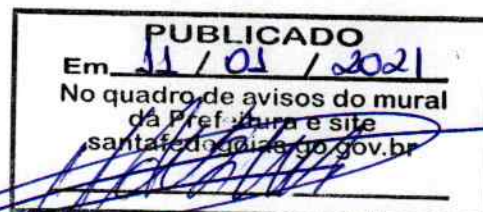 PUBLICADO
Em 11 / 01 / 2021
No quadro de avisos do mural
da Prefeitura e site
santafedogoias.go.gov.br